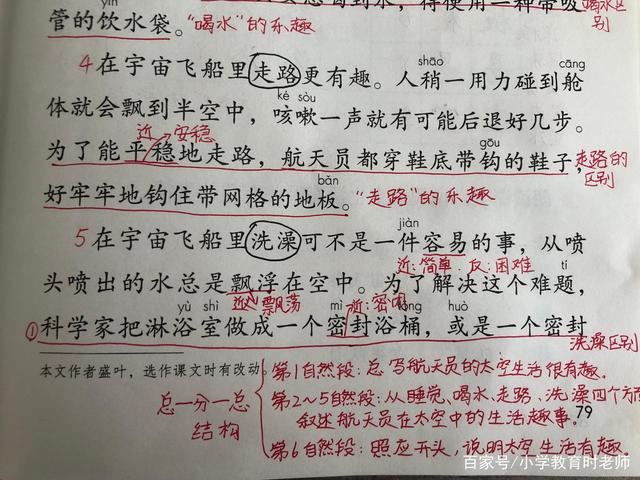 管的饮水袋。"喝水"的乐趣
喝水区别
yǐn
4 在宇宙飞船里走路更有趣。人稍一用力碰到舱
shāo cāng
体就会飘到半空中，咳嗽一声就有可能后退好几步。
ké sòu
近 安稳
为了能平稳地走路，航天员都穿鞋底带钩的鞋子，
gōu
走路的区别
好牢牢地钩住带网格的地板。"走路"的乐趣
bǎn
5 在宇宙飞船里洗澡可不是一件容易的事，从喷
jiàn
近：简单 反：困难
头喷出的水总是飘浮在空中。为了解决这个难题，
tí
近 飘荡
yù shì mì tǒng huò
①科学家把淋浴室做成一个密封浴桶，或是一个密封
洗澡区别
本文作者盛叶，选作课文时有改动。
总一分一总
结构
第1自然段：总写航天员的太空生活很有趣。
第2~5自然段：从睡觉、喝水、走路、洗澡四个方面
叙述航天员在太空中的生活趣事。
79
第6自然段：照应开头，说明太空生活有趣。
百家号/小学教育时老师